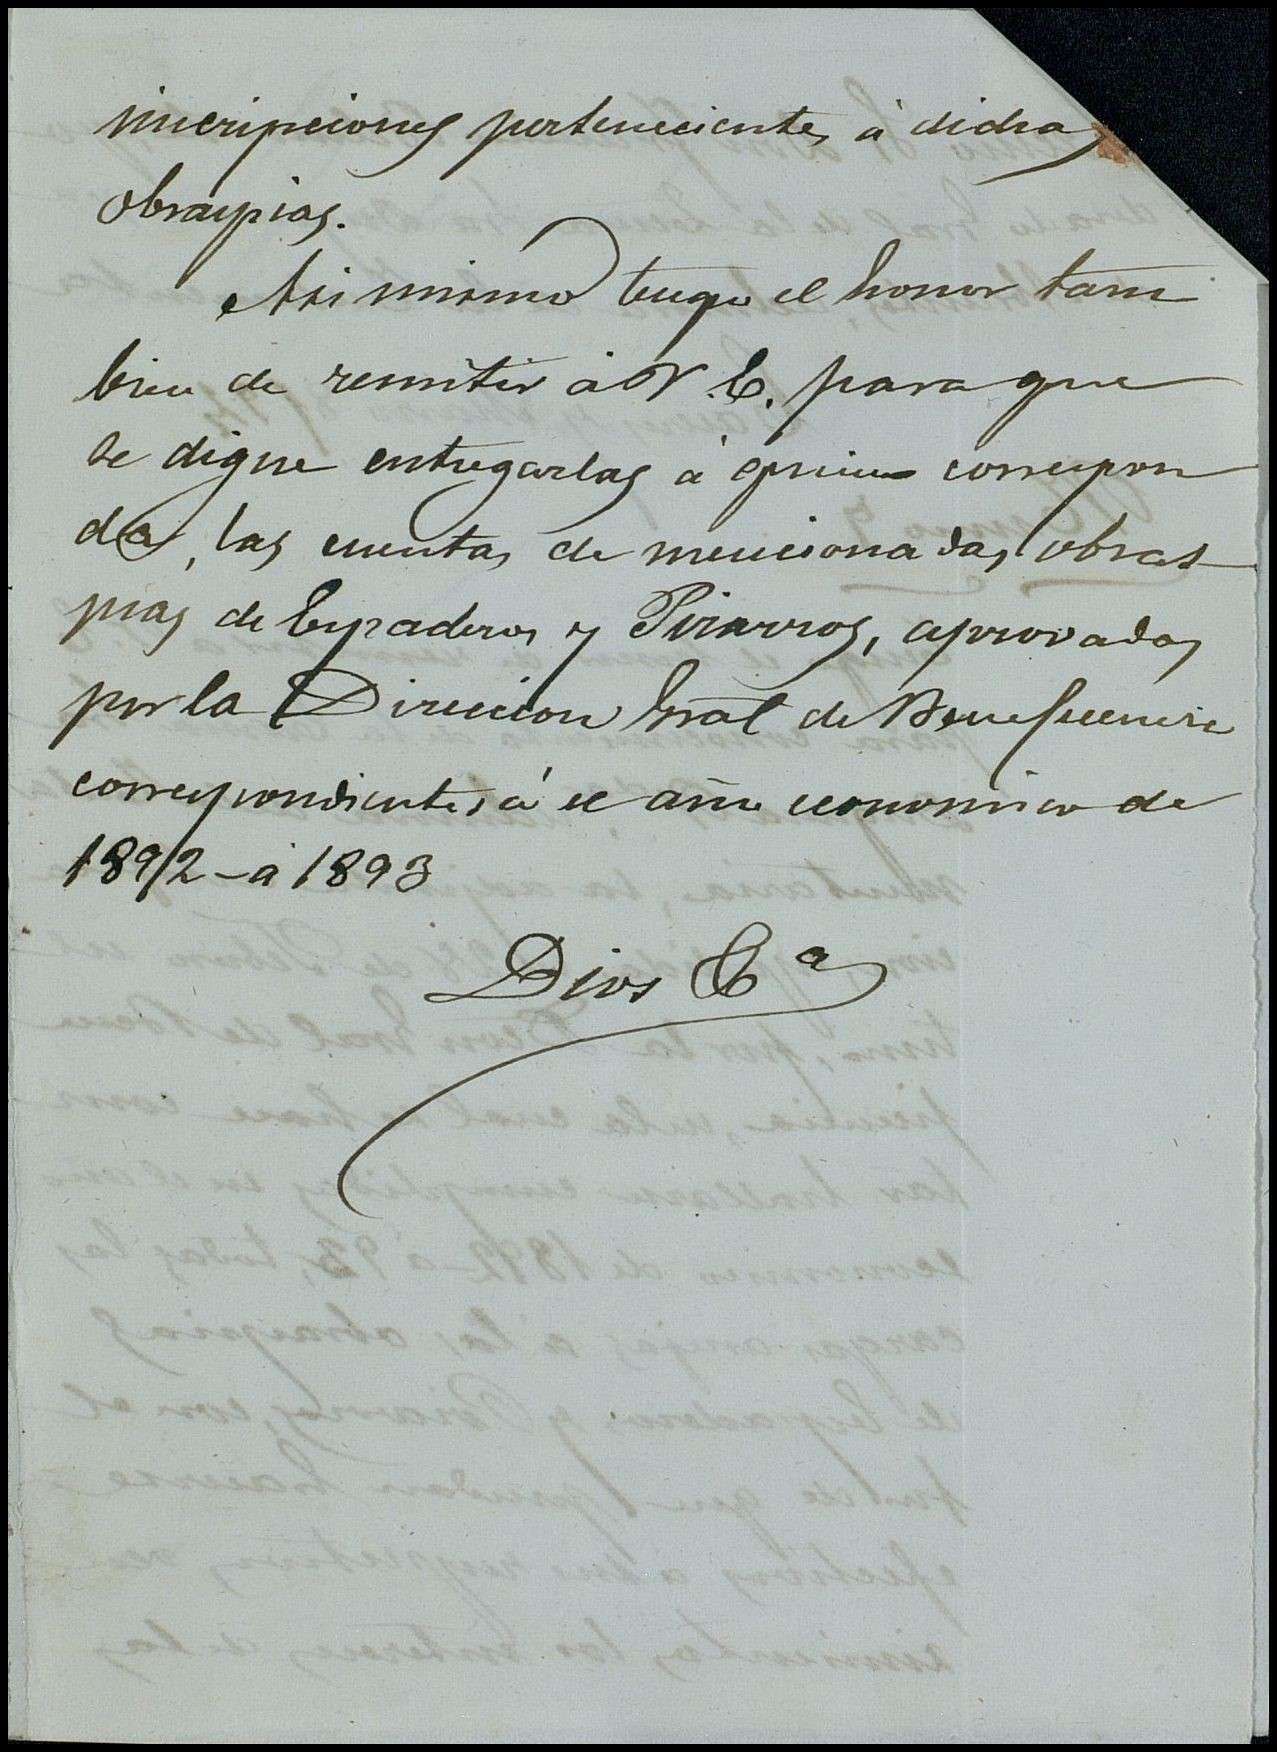 inscripciones pertenecientes á dichas
obraspias.
Asimismo tengo el honor tam
bien de remitir á V. E. para que
se digne entregarlas á quien correspon
da, las cuentas de mencionadas obras
pias de Espaderos y Pizarros, aprovadas
por la Direccion Gral de Beneficencia
correspondientes á el año economico de
1892 - á 1893
Dios &ª